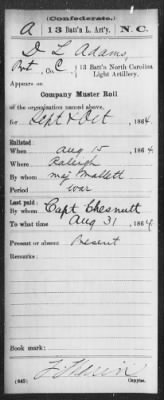 (Confederate.)
A 13 Batt'n L. Art'y. N.C.
D L Adams
Pvt, Co. C, 13 Batt'n North Carolina
Light Artillery.
Appears on
Company Muster Roll
of the organization named above,
for Sept & Oct, 1864.
Enlisted:
When Aug 15, 1864
Where Raleigh
By whom Maj Mallett
Period war
Last paid:
By whom Capt Chesnutt
To what time Aug 31, 1864
Present or absent Present
Remarks:
Book mark:
(642) Copyist.